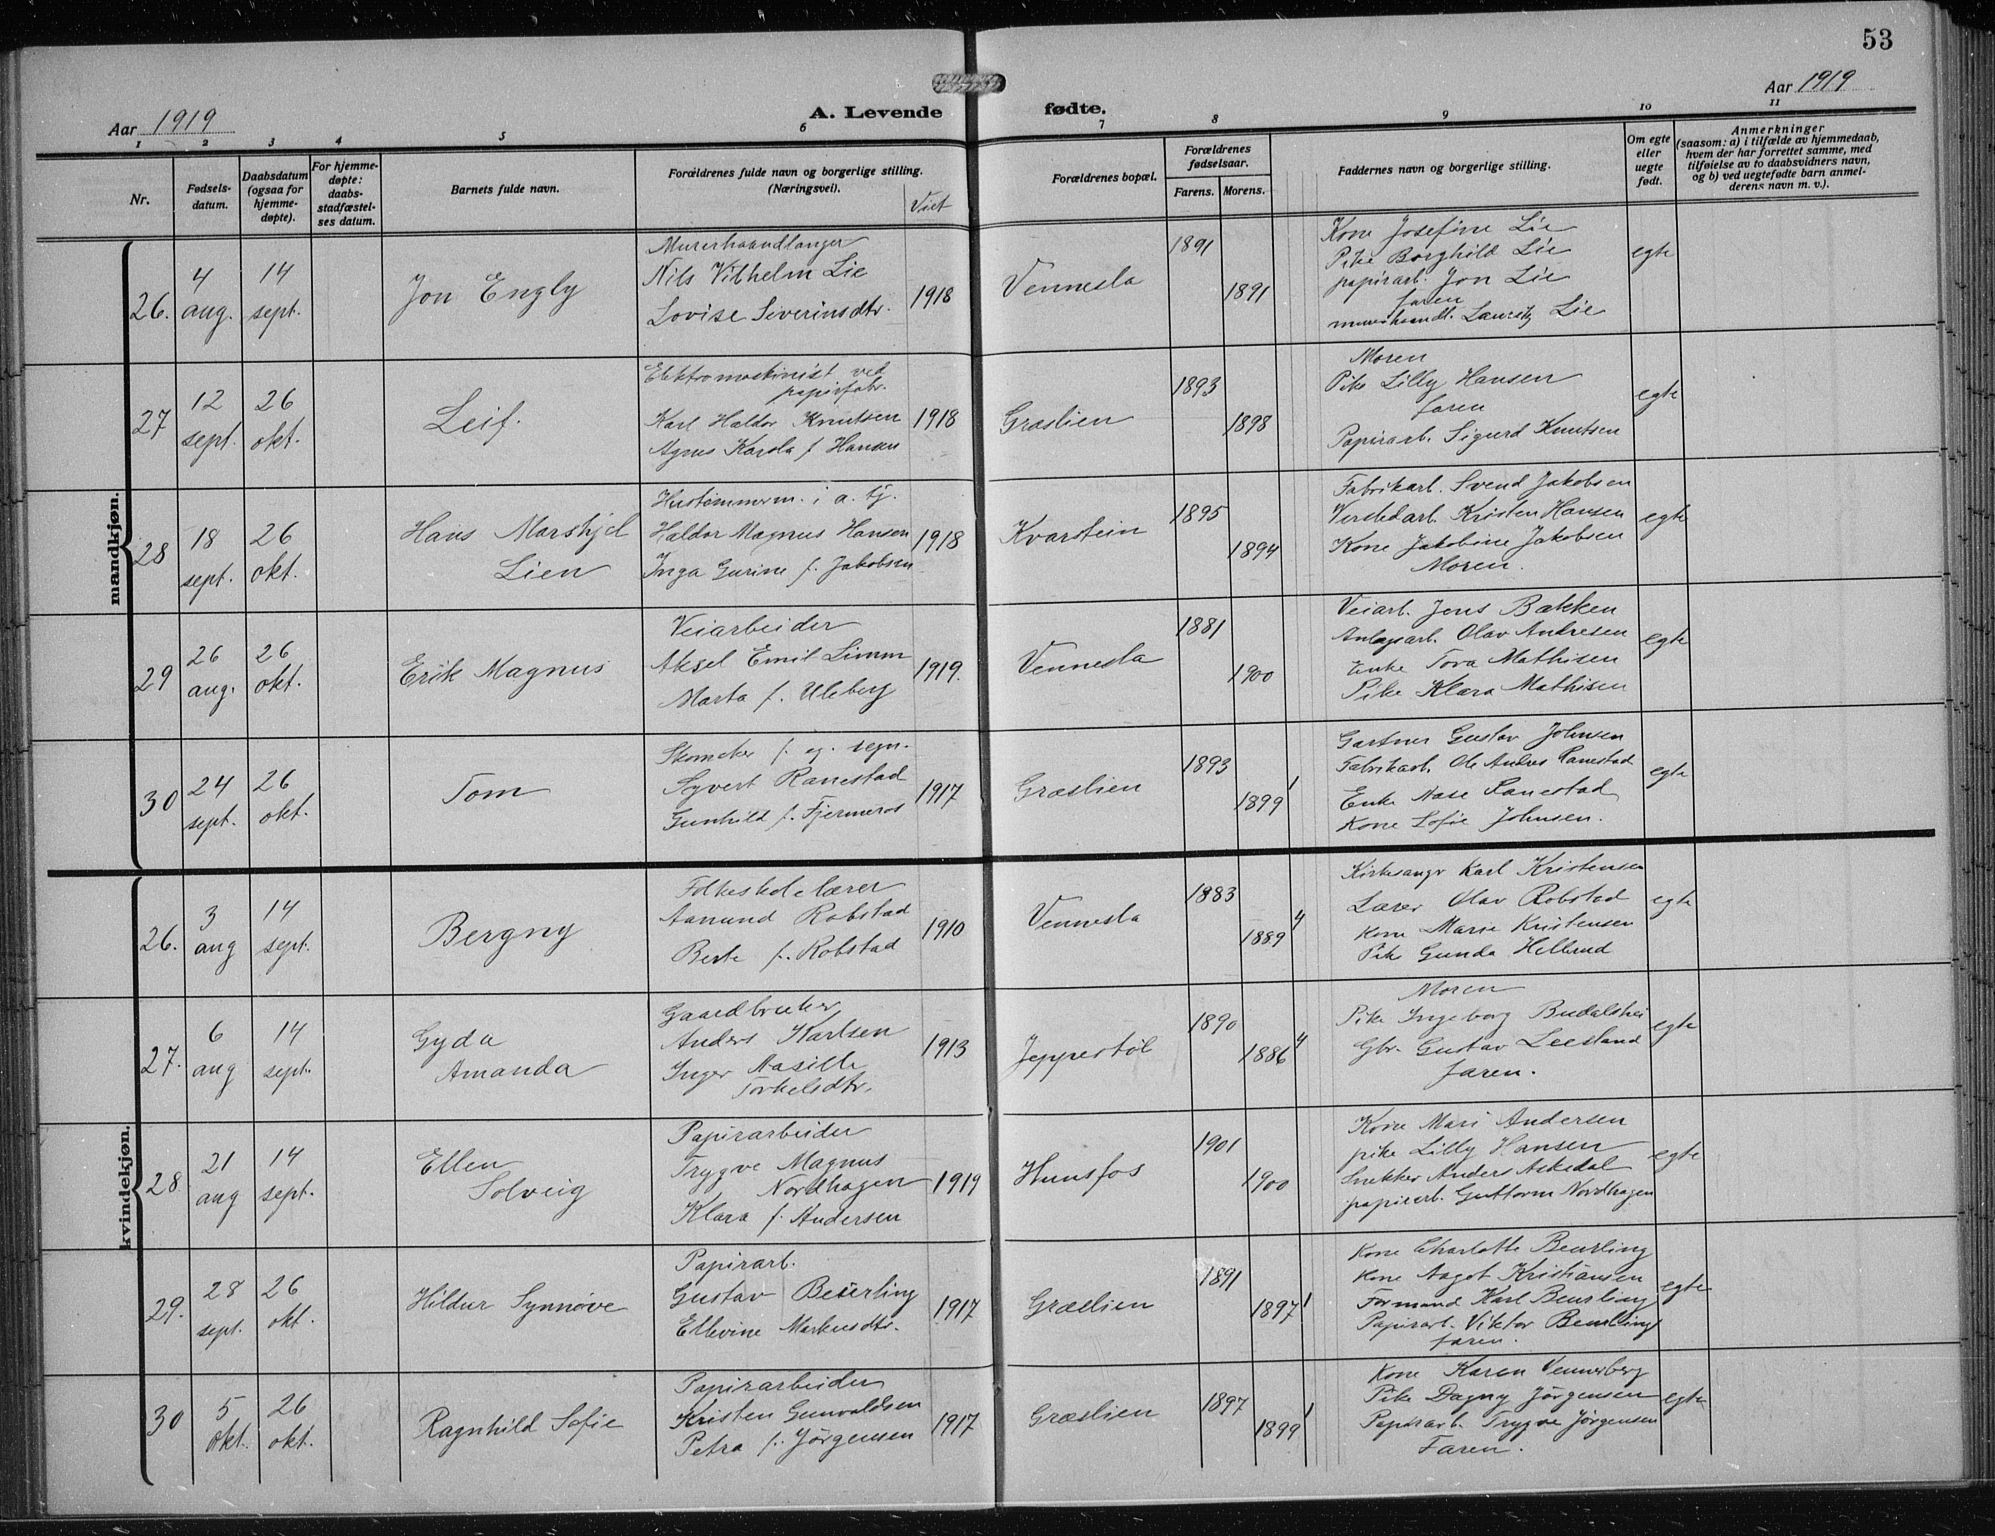 53
Aar 1919
A. Levende fødte.
Aar 1919
1 2 3 4 5 6 7 8 9 10 11
Nr.
Fødsels-
datum.
Daabsdatum
(ogsaa for
hjemme-
døpte).
For hjemme-
døpte:
daabs-
stadfæstel-
ses datum.
Barnets fulde navn.
Forældrenes fulde navn og borgerlige stilling.
(Næringsvei).
Viet
Forældrenes bopæl.
Forældrenes
fødselsaar.
Farens. Morens.
Faddernes navn og borgerlige stilling.
Om egte
eller
uegte
født.
Anmerkninger
(saasom: a) i tilfælde av hjemmedaab,
hvem der har forrettet samme, med
tilføielse av to daabsvidners navn,
og b) ved uegtefødte barn anmel-
derens navn m. v.).
mandkjøn.
26.
4
aug.
14
sept.
Jon Engly
Murerhaandlanger
Nils Vilhelm Lie
Lovise Severinsdtr.
1918
Vennesla
1891
1891
Kone Josefine Lie
Pike Borghild Lie
papirarb. Jon Lie
faren
murerhaandl. Lauritz Lie
egte
27
12
sept.
26
okt.
Leif.
Elektromaskinist ved
papirfabr.
Karl Haldor Knutsen
Agnes Karola f. Hansen
1918
Græslien
1893
1898
Moren
Pike Lilly Hansen
faren
Papirarb. Sigurd Knutsen
egte
28
18
sept.
26
okt.
Hans Marshjel
Lien
Hustømmerm. i a. tj.
Haldor Magnus Hansen
Inga Gurine f. Jakobsen
1918
Kvarstein
1895
1894
Fabrikarb. Svend Jakobsen
Verstedarb. Kristen Hansen
Kone Jakobine Jakobsen
Moren.
egte
29
26
aug.
26
okt.
Erik Magnus
Veiarbeider
Aksel Emil Limm
Marta f. Uleberg
1919.
Vennesla
1881
1900
Veiarb. Jens Bakken
Anlægsarb. Olav Andresen
Enke Tora Mathisen
Pike Klara Mathisen
egte
30
24
sept.
26
okt.
Tom
Skomaker f. eg. regn.
Syvert Ranestad
Gunhild f. Fjermeros
1917
Græslien
1893
1899 1
Gartner Gustav Johnsen
Fabrikarb. Ole Andres Ranestad
Enke Aase Ranestad
Kone Sofie Johnsen.
egte
kvindekjøn.
26.
3
aug
14
sept.
Bergny
Folkeskolelærer
Aanund Robstad
Berte f. Robstad
1910
Vennesla
1883
1889 4
Kirkesangr Karl Kristensen
Lærer Olav Robstad
Kone Marie Kristensen
Pike Gunda Hellund
egte
27.
6
aug
14
sept.
Gyda
Amanda
Gaardbruker
Anders Karlsen
Inger Aasille
Torkelsdtr.
1913
Jeppestøl
1890
1886 4
Moren
Pike Ingeborg Budalshei
Gbr. Gustav Leesland
faren.
egte
28
21
aug
14
sept.
Ellen
Solveig
Papirarbeider
Trygve Magnus
Nordhagen
Klara f. Andersen
1919
Hunsfos
1901
1900
Kone Mari Andersen
pike Lilly Hansen
Snekker Anders Askedal
papirarb. Guttorm Nordhagen
egte
29.
28
sept.
26
okt.
Hildur Synnøve
Papirarb.
Gustav Beurling
Ellevine Markusdtr.
1917
Græslien
1891
1897 1
Kone Charlotte Beurling
Kone Aagot Kristiansen
Formand Karl Beurling
Papirarb. Viktor Beurling
faren.
egte
30
5
okt.
26
okt.
Ragnhild Sofie
Papirarbeider
Kristen Gunvaldsen
Petra f. Jörgensen
1917
Græslien
1897
1899 1
Kone Karen Vennerberg
Pike Dagny Jörgensen
Papirarb. Trygve Jörgensen
Faren.
egte